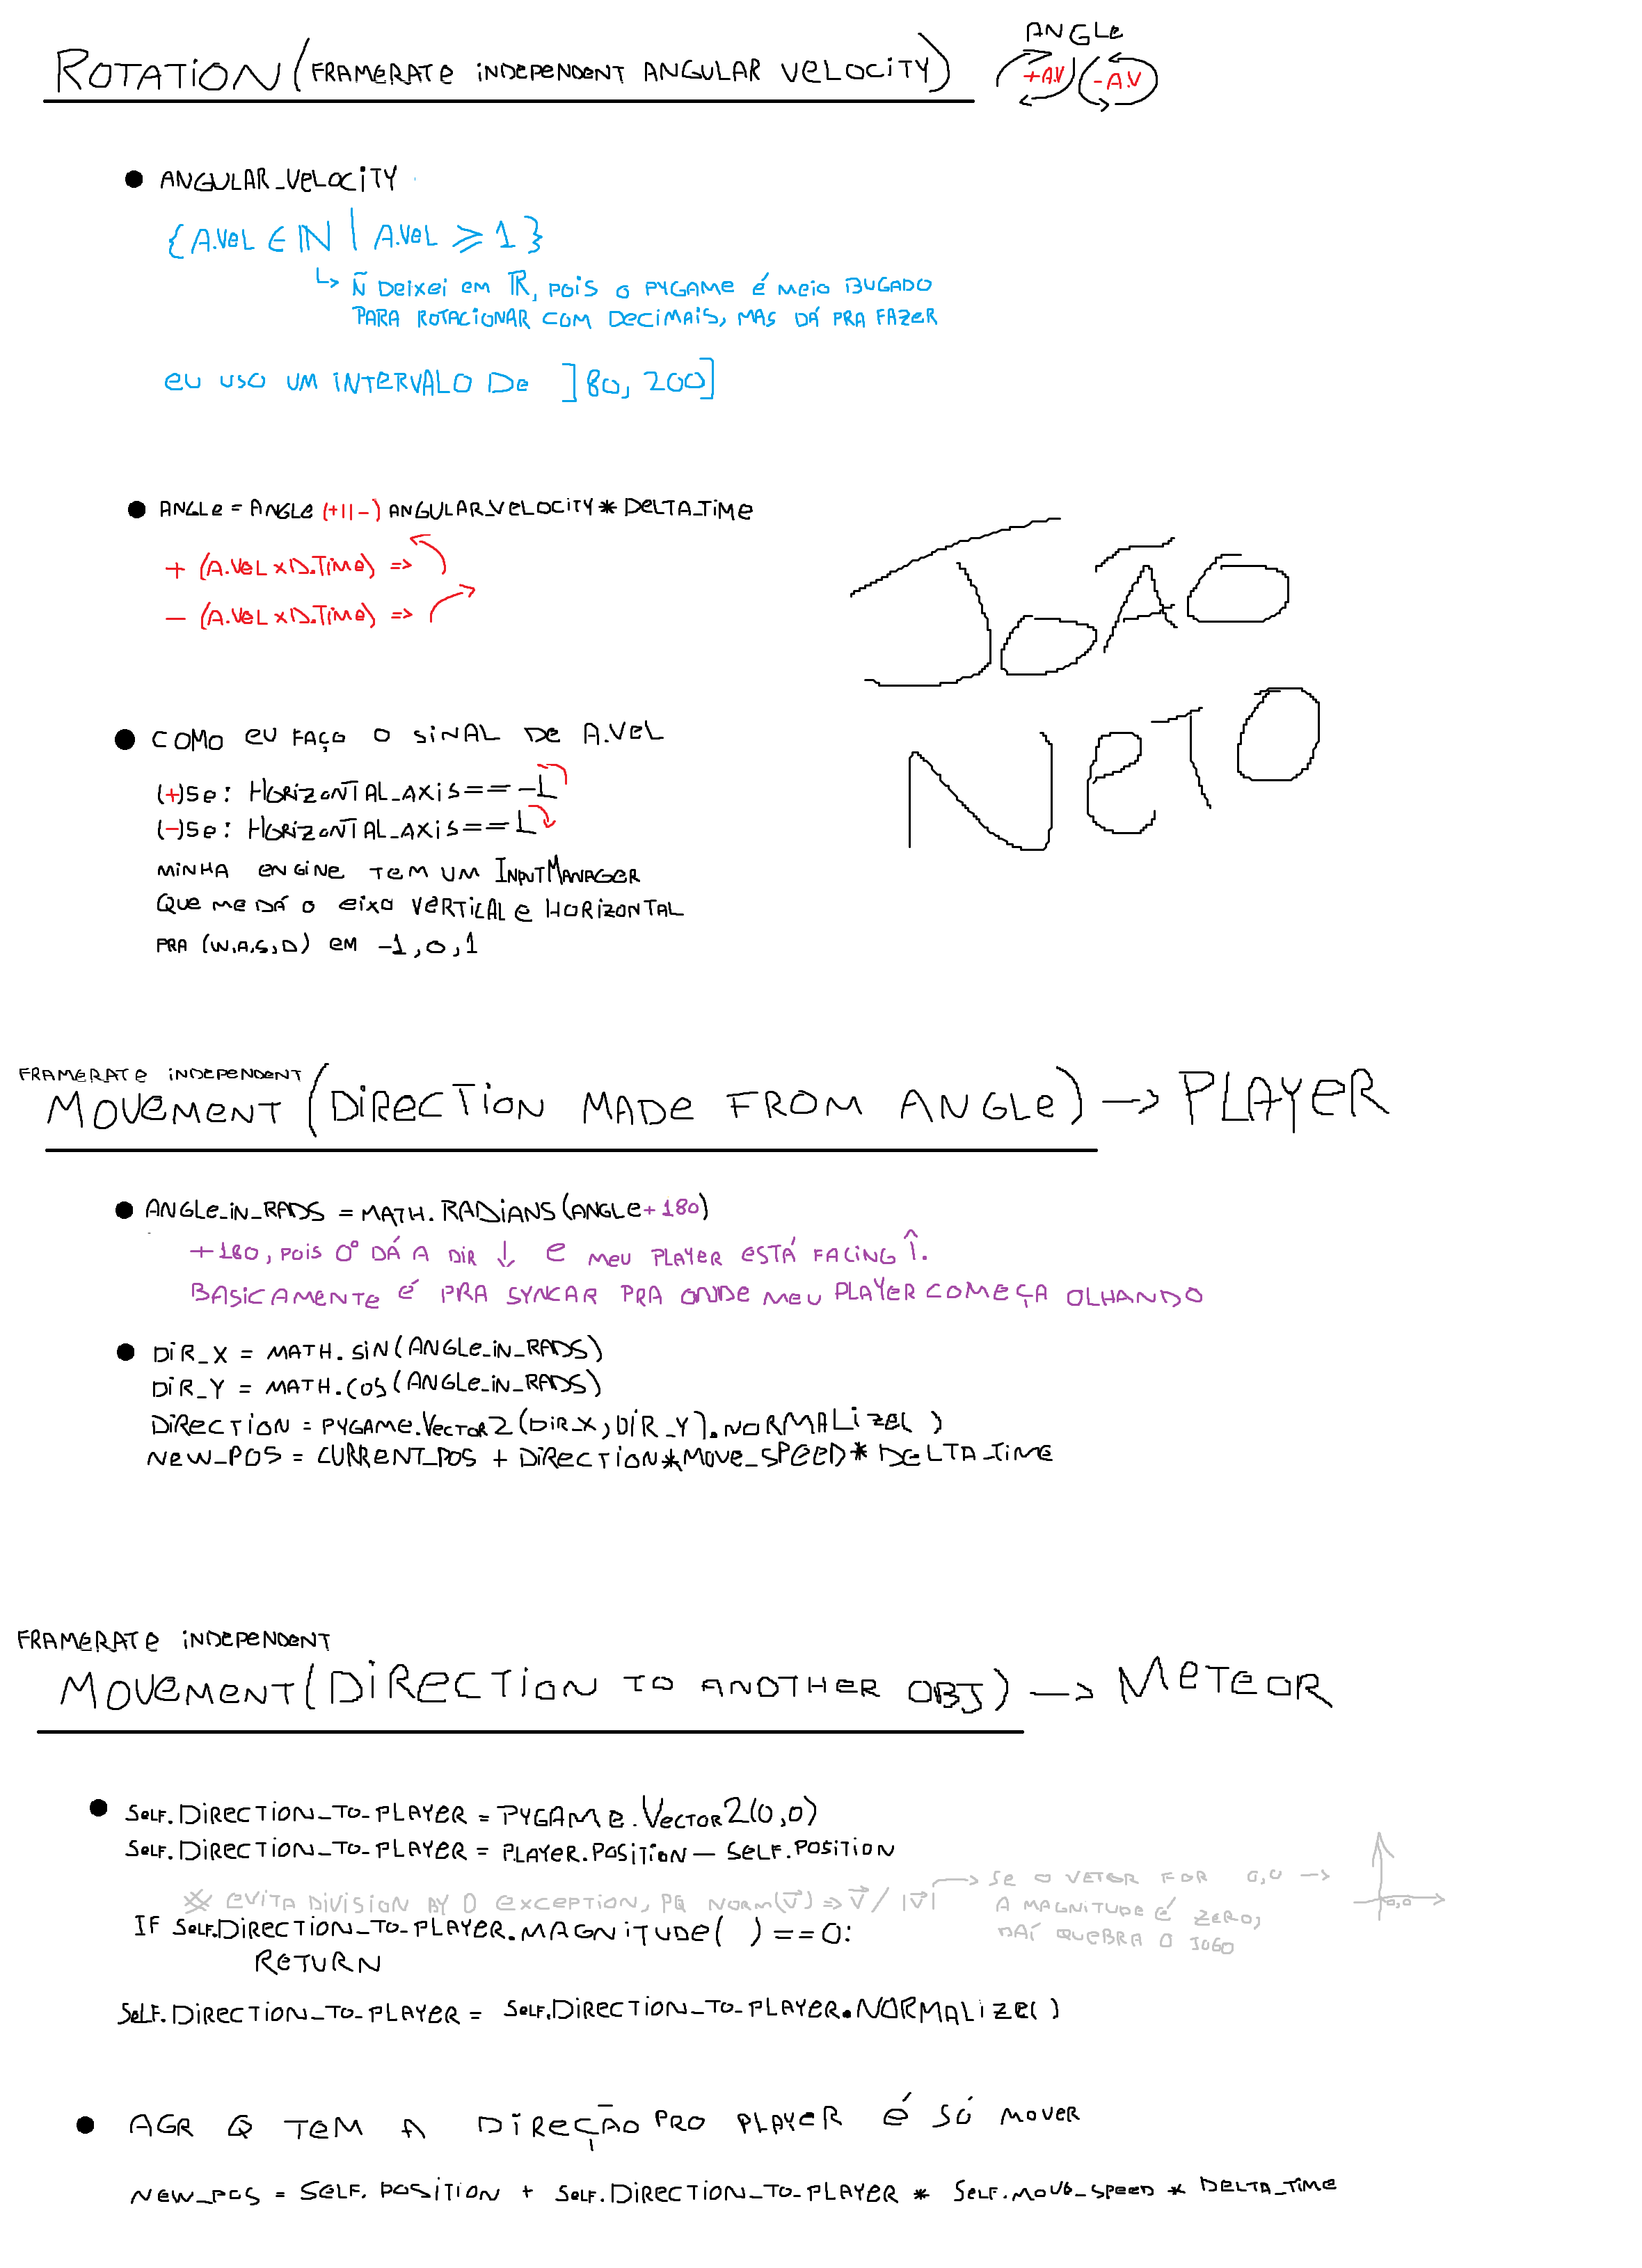 ANGLE
ROTATION (FRAMERATE INDEPENDENT ANGULAR VELOCITY)
+A.V
-A.V
● ANGULAR_VELOCITY
{A.VEL ∈ ℕ | A.VEL ⩾ 1}
↳ Ñ DEIXEI EM ℝ, POIS O PYGAME É MEIO BUGADO
PARA ROTACIONAR COM DECIMAIS, MAS DÁ PRA FAZER
EU USO UM INTERVALO DE ]80, 200]
● ANGLE = ANGLE (+||-) ANGULAR_VELOCITY * DELTA_TIME
+ (A.VEL x D.TIME) =>
- (A.VEL x D.TIME) =>
JOÃO
NETO
● COMO EU FAÇO O SINAL DE A.VEL
(+)SE: HORIZONTAL_AXIS == -1
(-)SE: HORIZONTAL_AXIS == 1
MINHA ENGINE TEM UM INPUTMANAGER
QUE ME DÁ O EIXO VERTICAL E HORIZONTAL
PRA (W,A,S,D) EM -1,0,1
FRAMERATE INDEPENDENT
MOVEMENT (DIRECTION MADE FROM ANGLE) -> PLAYER
● ANGLE_IN_RADS = MATH.RADIANS(ANGLE+180)
+180, POIS 0° DÁ A DIR ↓ E MEU PLAYER ESTÁ FACING ↑.
BASICAMENTE É PRA SYNCAR PRA ONDE MEU PLAYER COMEÇA OLHANDO
● DIR_X = MATH.SIN(ANGLE_IN_RADS)
DIR_Y = MATH.COS(ANGLE_IN_RADS)
DIRECTION = PYGAME.VECTOR2(DIR_X, DIR_Y).NORMALIZE()
NEW_POS = CURRENT_POS + DIRECTION*MOVE_SPEED*DELTA_TIME
FRAMERATE INDEPENDENT
MOVEMENT (DIRECTION TO ANOTHER OBJ) -> METEOR
● SELF.DIRECTION_TO_PLAYER = PYGAME.VECTOR2(0,0)
SELF.DIRECTION_TO_PLAYER = PLAYER.POSITION - SELF.POSITION
※ EVITA DIVISION BY 0 EXCEPTION, PQ NORM(V⃗) => V⃗ / |V⃗|
-> SE O VETOR FOR 0,0 ->
A MAGNITUDE É ZERO,
DAÍ QUEBRA O JOGO
0,0
IF SELF.DIRECTION_TO_PLAYER.MAGNITUDE() == 0:
RETURN
SELF.DIRECTION_TO_PLAYER = SELF.DIRECTION_TO_PLAYER.NORMALIZE()
● AGR Q TEM A DIREÇÃO PRO PLAYER É SÓ MOVER
NEW_POS = SELF.POSITION + SELF.DIRECTION_TO_PLAYER * SELF.MOVE_SPEED * DELTA_TIME